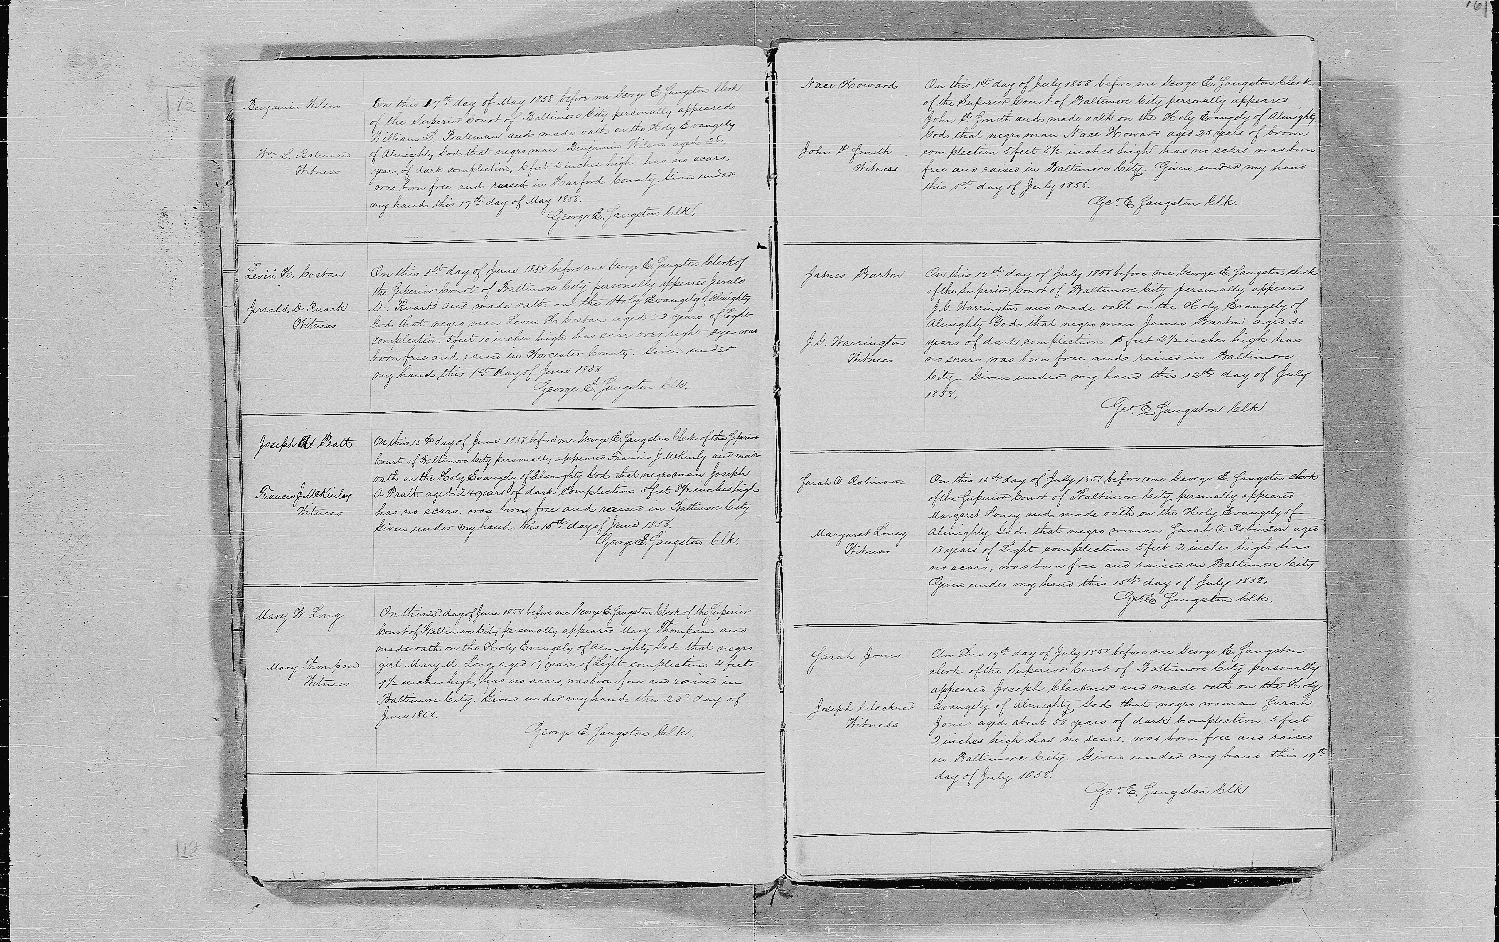 Benjamin Wilson
Wm S. Bateman
Witness
On this 17th day of May 1858 before me George E. Sangston Clerk
of the Superior Court of Baltimore City personally appeared
William S. Bateman and made oath on the Holy Evangely
of Almighty God that negro man Benjamin Wilson aged
years, of dark complection, 5 feet 2 inches high has no scars,
was born free and raised in Harford County. Given under
my hand this 17th day of May 1858.
George E. Sangston Clk.
Levin H.
Gerald D.
Witness
On this 1st day of June 1858 before me George E. Sangston Clerk of
the Superior Court of Baltimore City personally appeared Gerald
D. and made oath on the Holy Evangely of Almighty
God that negro man Levin H. aged years of Light
complection 5 feet inches high, has scar over right eye was
born free and raised in Worcester County. Given under
my hand this 1st day of June 1858
George E. Sangston Clk.
Joseph A Pratt
Francis J. McKinley
Witness
On this 15th day of June 1858 before me George E. Sangston Clerk of the Superior
Court of Baltimore City personally appeared Francis J McKinly and made
oath on the Holy Evangely of Almighty God that negro man Joseph
A Pratt aged years of dark Complection 5 feet inches high
has no scars was born free and raised in Baltimore City
Given under my hand this 15th day of June 1858.
George E Sangston Clk.
Mary W Long
Mary Thompson
Witness
On this day of June 1858 before me George E. Sangston Clerk of the Superior
Court of Baltimore City personally appeared Mary Thompson and
made oath on the Holy Evangely of Almighty God that negro
girl Mary W Long aged 17 years of Light complection 4 feet
inches high, has no scars, was born free and raised in
Baltimore City Given under my hand this day of
June 1858.
George E Sangston Clk.
Nace Howard
John Smith
Witness
On this 1st day of July 1858 before me George E. Sangston Clerk
of the Superior Court of Baltimore City personally appeared
John Smith and made oath on the Holy Evangely of Almighty
God that negro man Nace Howard aged 23 years of brown
complection 5 feet 2½ inches high has no scars was born
free and raised in Baltimore City. Given under my hand
this 1st day of July 1858.
Geo E Sangston Clk.
James Barton
J. G. Warrington
Witness
On this 12th day of July 1858 before me George E. Sangston Clerk
of the Superior Court of Baltimore City personally appeared
J. G. Warrington and made oath on the Holy Evangely of
Almighty God that negro man James Barton aged
years of dark complection 5 feet inches high has
no scars was born free and raised in Baltimore
City. Given under my hand this 12th day of July
1858.
Geo E Sangston Clk
Sarah A Robinson
Margaret Loney
Witness
On this 15th day of July 1858 before me George E. Sangston Clerk
of the Superior Court of Baltimore City personally appeared
Margaret Loney and made oath on the Holy Evangely of
Almighty God that negro woman Sarah A Robinson aged
18 years of Light complection 5 feet 2 inches high has
no scars, was born free and raised in Baltimore City
Given under my hand this 15th day of July 1858.
Geo E Sangston Clk.
Sarah Jones
Joseph
Witness
On this 19th day of July 1858 before me George E. Sangston
clerk of the Superior Court of Baltimore City personally
appeared Joseph and made oath on the Holy
Evangely of Almighty God that negro woman Sarah
Jones aged about 58 years of dark Complection 5 feet
2 inches high has no scars. was born free and raised
in Baltimore City Given under my hand this 19th
day of July 1858.
Geo E. Sangston Clk